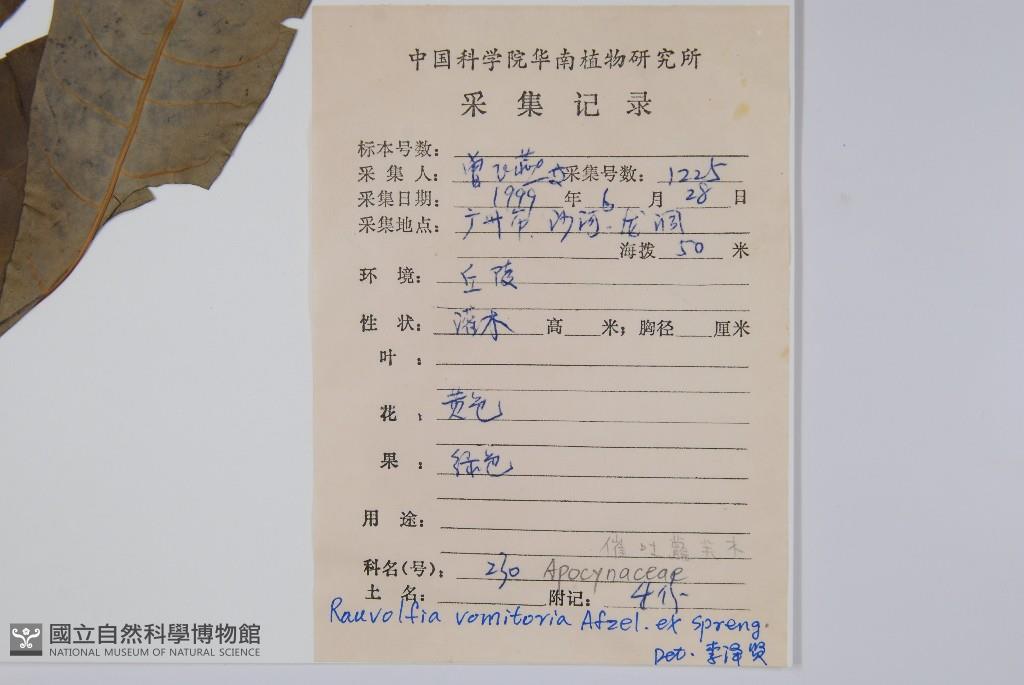 中国科学院华南植物研究所
采集记录
标本号数：
采集人：曾飞燕 采集号数：1225
采集日期：1999年6月28日
采集地点：广州市.沙河-龙洞
海拨 50 米
环境：丘陵
性状：灌木 高 米；胸径 厘米
叶：
花：黄色
果：绿色
用途：
催吐蘿芙木
科名(号)：230 Apocynaceae
土名： 附记：4份
Rauvolfia vomitoria Afzel. ex Spreng.
Det. 李泽贤
國立自然科學博物館
NATIONAL MUSEUM OF NATURAL SCIENCE